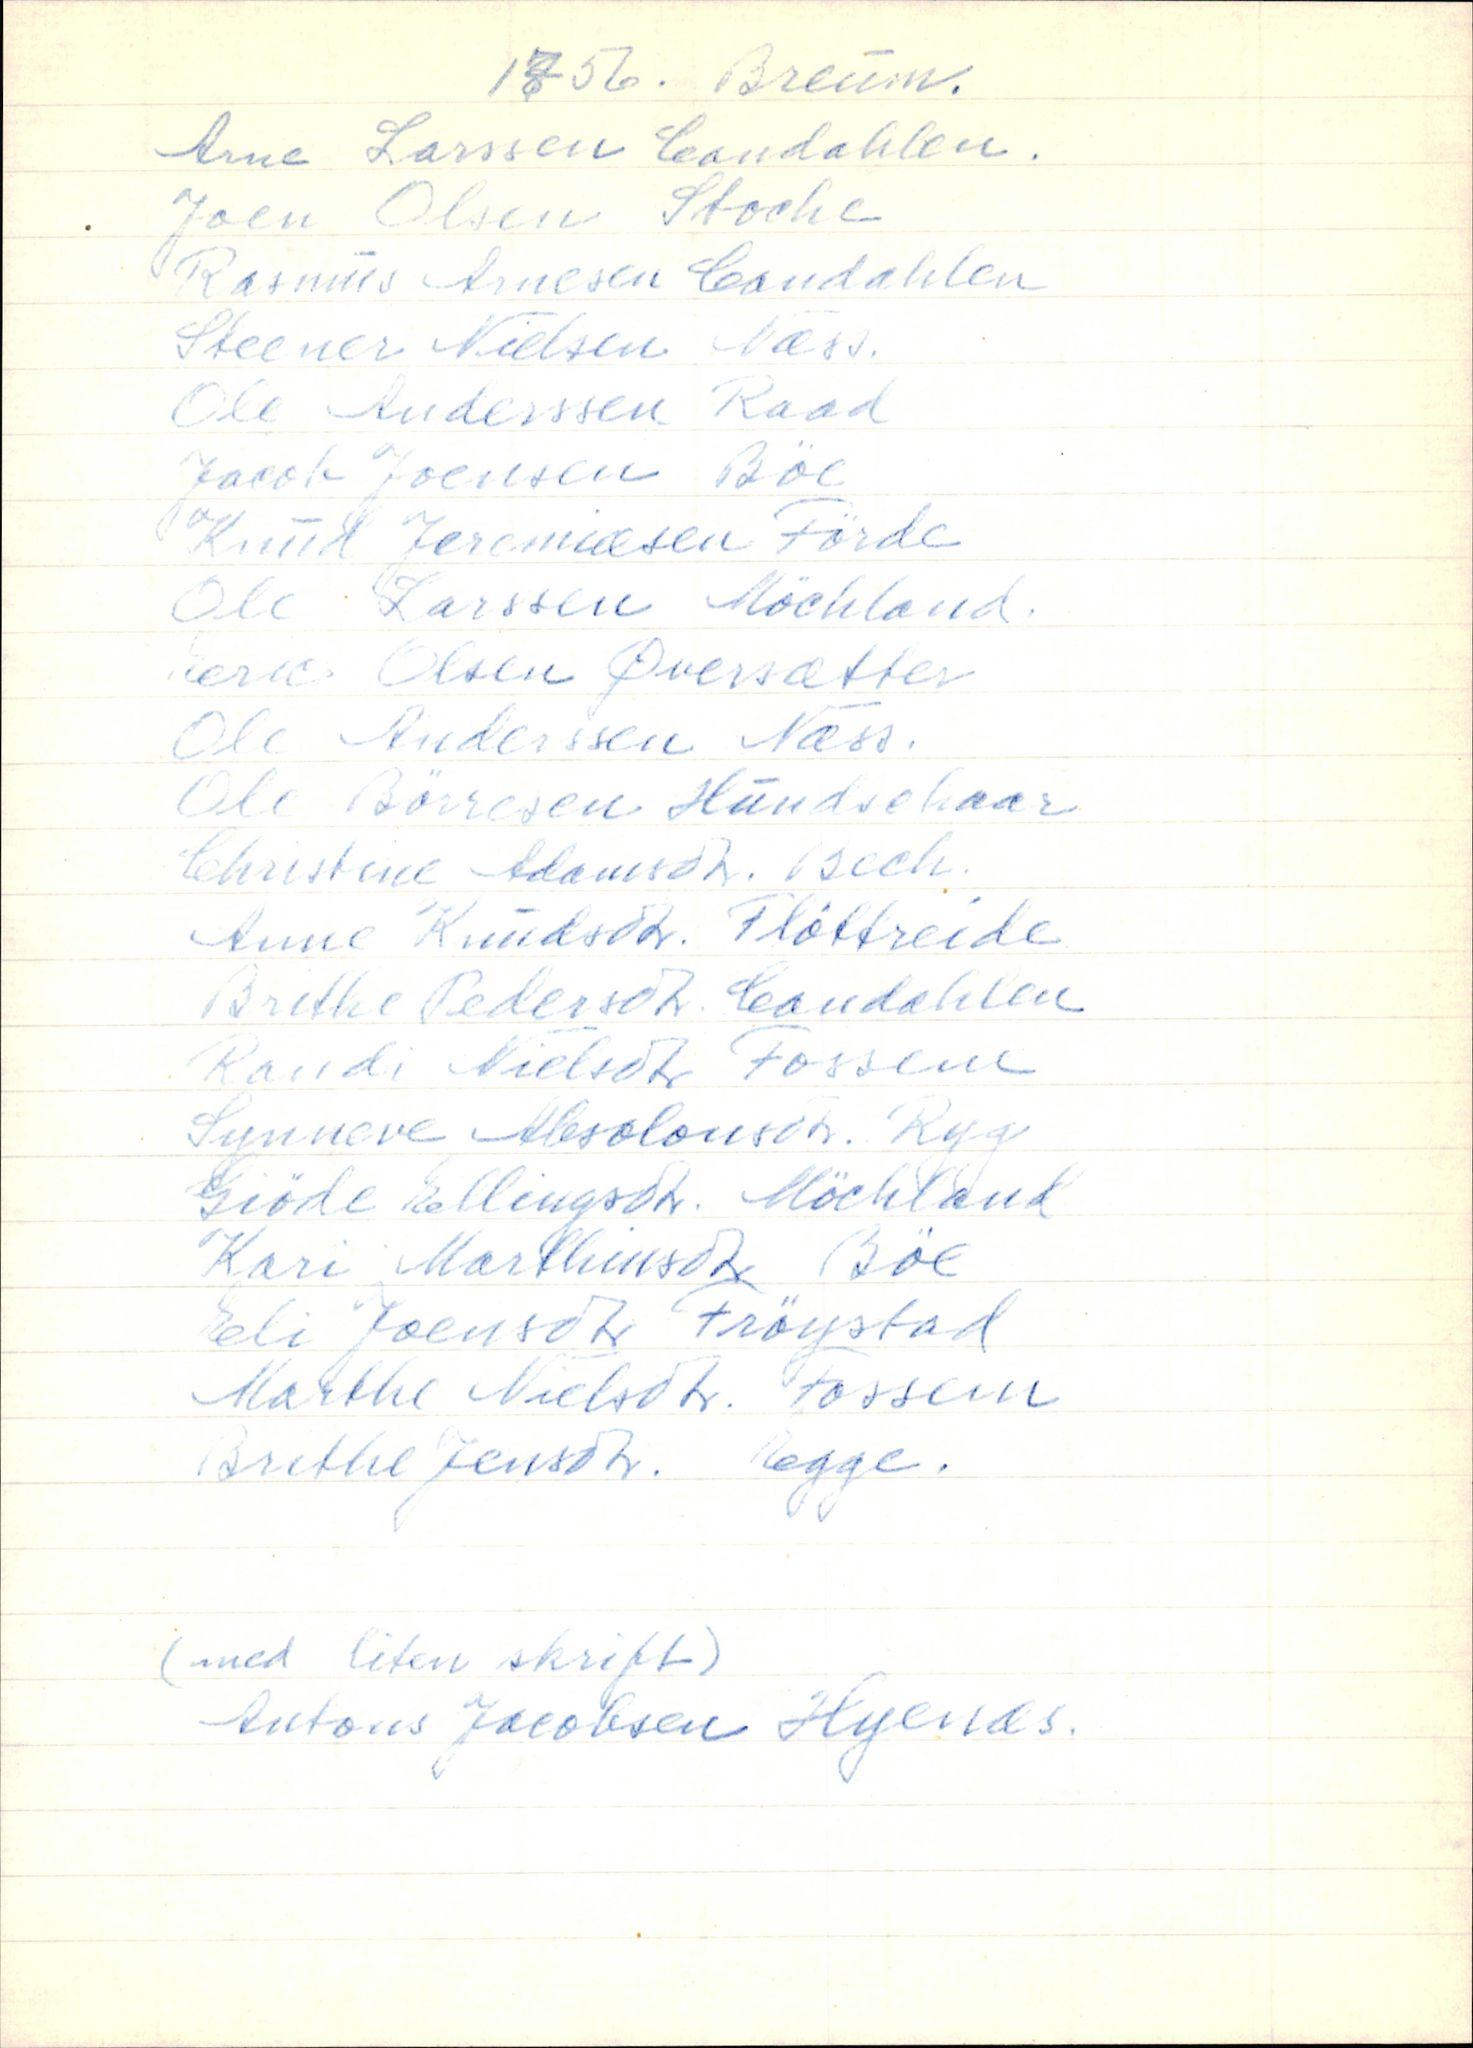 1756. Breüm.
Arne Larssen Candahlen.
Joen Olsen Stoche
Rasmüs Arnesen Candahlen
Steener Nielsen Næss.
Ole Anderssen Raad
Jacob Joensen Böe
Knüd Jeremiæsen Förde
Ole Larssen Möchland.
Olsen Øversætter
Ole Anderssen Næss.
Ole Börresen Hündschaar
Christine Adamsdtr. Bech.
Anne Knüdsdtr. Flöttreide
Brithe Pedersdtr. Candahlen
Randi Nielsdtr Fossem
Synneve Absolonsdtr. Ryg
Giöde Ellingsdtr. Möchland
Kari Marthinsdtr Böe
Eli Joensdtr Fröystad
Marthe Nielsdtr. Fossem
Brithe Jensdtr. Egge.
(med liten skrift)
Antons Jacobsen Hyenæs.